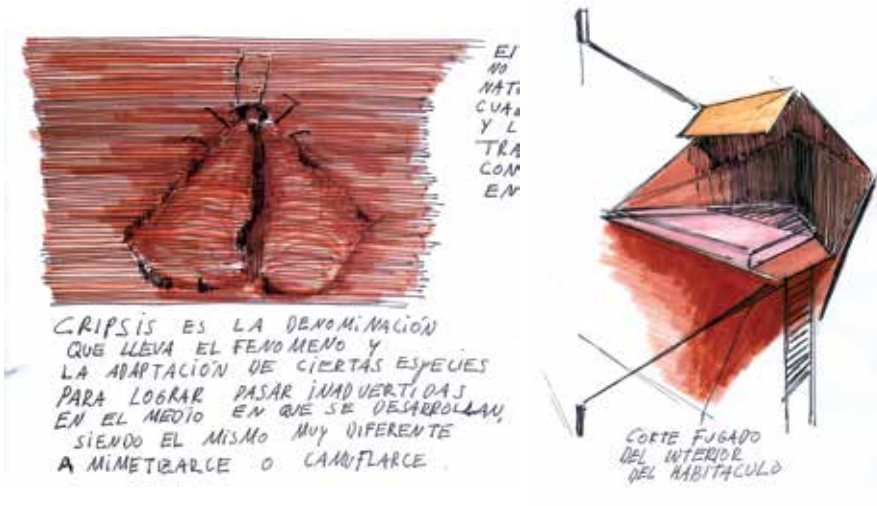 CRIPSIS ES LA DENOMINACIÓN
QUE LLEVA EL FENOMENO Y
LA ADAPTACIÓN DE CIERTAS ESPECIES
PARA LOGRAR PASAR INADVERTIDAS
EN EL MEDIO EN QUE SE DESARROLLAN,
SIENDO EL MISMO MUY DIFERENTE
A MIMETIZARCE O CAMUFLARCE.
NO
Y L
TRA
CON
EN
CORTE FUGADO
DEL INTERIOR
DEL HABITACULO